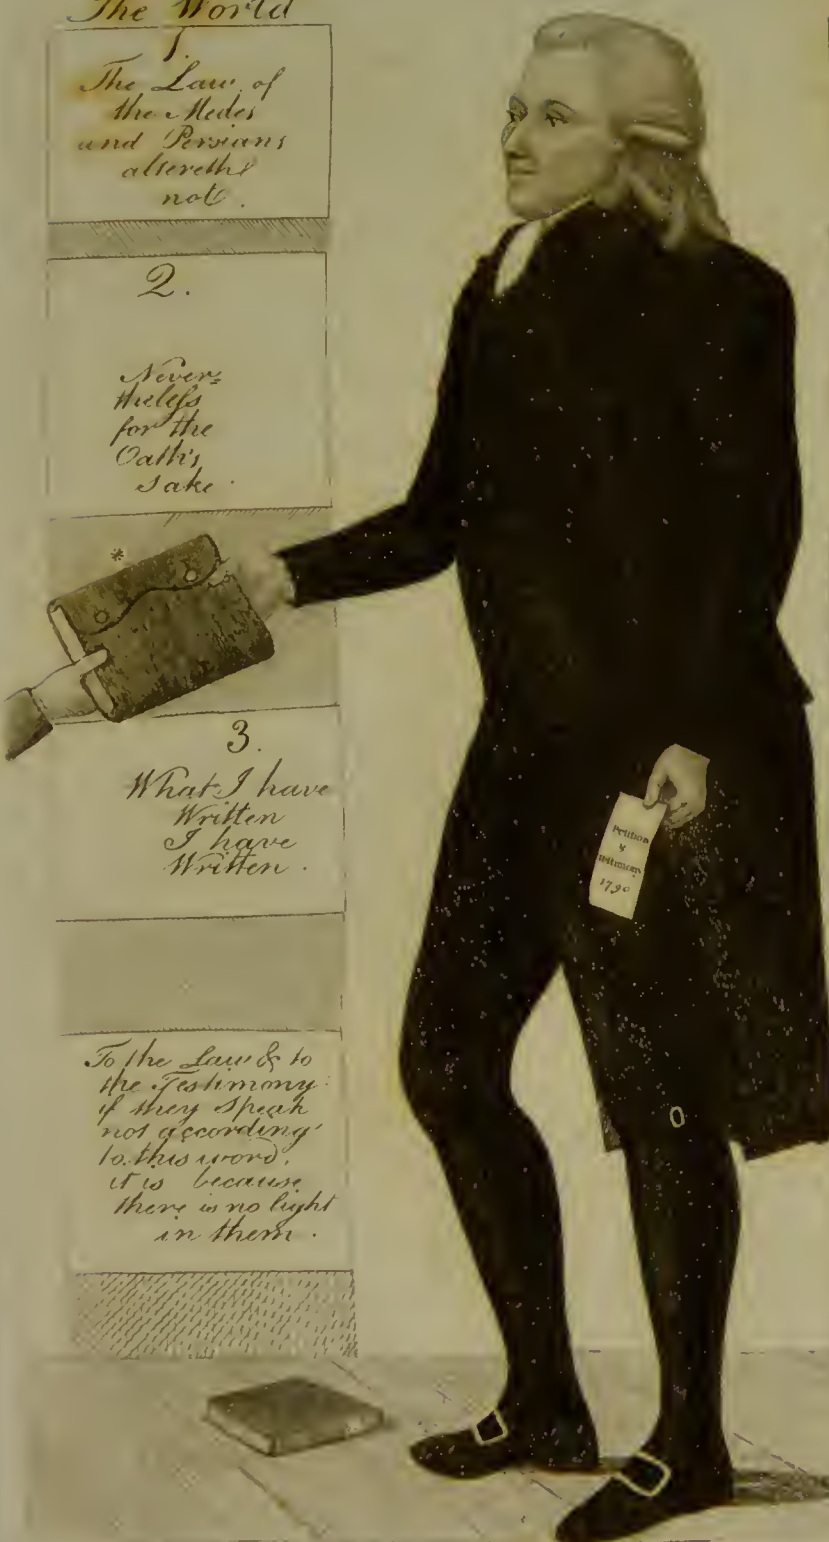 The World
1.
The Law of
the Medes
and Persians
altereth
not.
2.
Never=
thelefs
for the
Oath's
sake.
*
3.
What I have
Written
I have
Written.
Petition
&
Testimony
1790
To the Law & to
the Testimony:
if they speak
not according
to this word,
it is because
there is no light
in them.